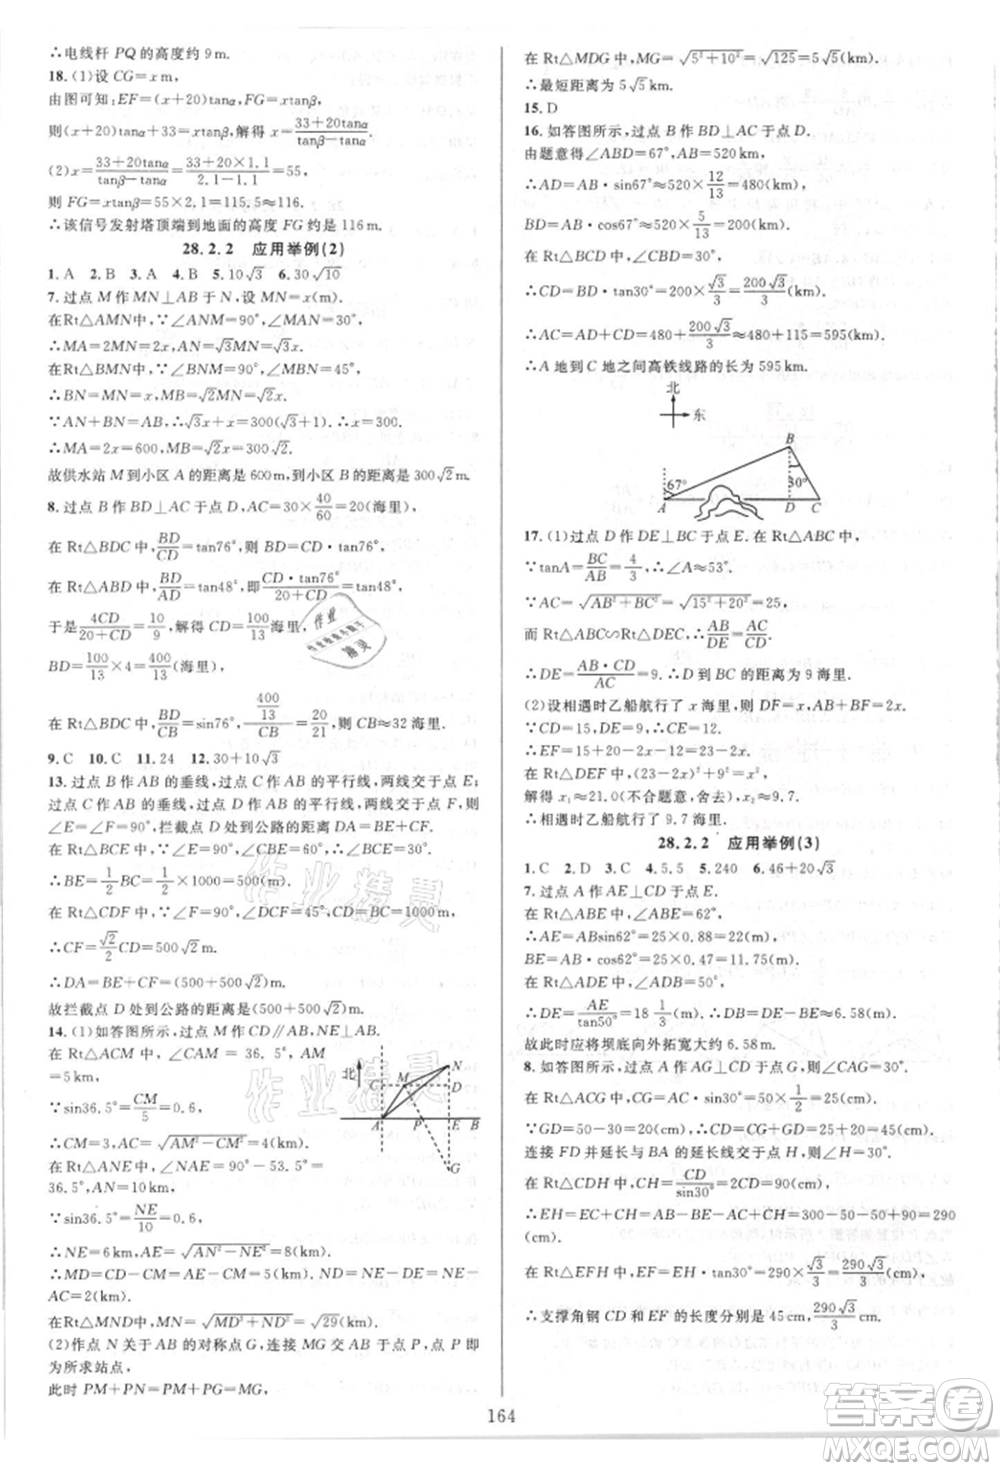 ∴电线杆 PQ 的高度约 9 m.
18.(1)设 CG=x m,
由图可知:EF=(x+20)tanα,FG=xtanβ,
则(x+20)tanα+33=xtanβ,解得 x=(33+20tanα)/(tanβ−tanα).
(2)x=(33+20tanα)/(tanβ−tanα)=(33+20×1.1)/(2.1−1.1)=55,
则 FG=xtanβ=55×2.1=115.5≈116.
∴该信号发射塔顶端到地面的高度 FG 约是 116 m.
28.2.2 应用举例(2)
1.A 2.B 3.A 4.B 5.10√3 6.30√10
7.过点 M 作 MN⊥AB 于 N,设 MN=x(m).
在 Rt△AMN 中,∵∠ANM=90°,∠MAN=30°,
∴MA=2MN=2x,AN=√3MN=√3x(m).
在 Rt△BMN 中,∵∠BNM=90°,∠MBN=45°,
∴BN=MN=x,MB=√2MN=√2x.
∵AN+BN=AB,∴√3x+x=300(√3+1).∴x=300.
∴MA=2x=600,MB=√2x=300√2.
故供水站 M 到小区 A 的距离是 600 m,到小区 B 的距离是 300√2 m.
8.过点 B 作 BD⊥AC 于点 D,AC=30×40/60=20(海里).
在 Rt△BDC 中,BD/CD=tan76°,则 BD=CD·tan76°.
在 Rt△ABD 中,BD/AD=tan48°,即(CD·tan76°)/(20+CD)=tan48°,
于是 4CD/(20+CD)=10/9,解得 CD=100/13(海里),
BD=100/13×4=400/13(海里),
在 Rt△BDC 中,BD/CB=sin76°,(400/13)/CB=20/21,则 CB≈32 海里.
9.C 10.C 11.24 12.30+10√3
13.过点 B 作 AB 的垂线,过点 C 作 AB 的平行线,两线交于点 E;
过点 C 作 AB 的垂线,过点 D 作 AB 的平行线,两线交于点 F,
则∠E=∠F=90°,拦截点 D 处到公路的距离 DA=BE+CF.
在 Rt△BCE 中,∵∠E=90°,∠CBE=60°,∴∠BCE=30°.
∴BE=1/2BC=1/2×1000=500(m).
在 Rt△CDF 中,∵∠F=90°,∠DCF=45°,CD=BC=1000 m,
∴CF=√2/2CD=500√2 m.
∴DA=BE+CF=(500+500√2)m.
故拦截点 D 处到公路的距离是(500+500√2)m.
14.(1)如答图所示,过点 M 作 CD∥AB,NE⊥AB.
在 Rt△ACM 中,∠CAM=36.5°,AM
=5 km,
∵sin36.5°=CM/5=0.6,
∴CM=3,AC=√(AM²−CM²)=4(km).
在 Rt△ANE 中,∠NAE=90°−53.5°=
36.5°,AN=10(km),
∵sin36.5°=NE/10=0.6,
∴NE=6 km,AE=√(AN²−NE²)=8(km).
∴MD=CD−CM=AE−CM=5(km). ND=NE−DE=NE−
AC=2(km).
在 Rt△MND 中,MN=√(MD²+ND²)=√29(km).
(2)作点 N 关于 AB 的对称点 G,连接 MG 交 AB 于点 P,点 P 即
为所求站点,
此时 PM+PN=PM+PG=MG,
北 C M N D A P E B G
在 Rt△MDG 中,MG=√(5²+10²)=√125=5√5(km).
∴最短距离为 5√5 km.
15.D
16.如答图所示,过点 B 作 BD⊥AC 于点 D.
由题意得∠ABD=67°,AB=520 km,
∴AD=AB·sin67°≈520×12/13=480(km);
BD=AB·cos67°≈520×5/13=200(km).
在 Rt△BCD 中,∠CBD=30°,
∴CD=BD·tan30°=200×√3/3=200√3/3(km),
∴AC=AD+CD=480+200√3/3≈480+115=595(km).
∴A 地到 C 地之间高铁线路的长为 595 km.
北 东
67° 30° A B D C
17.(1)过点 D 作 DE⊥BC 于点 E.在 Rt△ABC 中,
∵tanA=BC/AB=4/3,∴∠A≈53°.
∵AC=√(AB²+BC²)=√(15²+20²)=25,
而 Rt△ABC∽Rt△DEC,∴AB/DE=AC/CD.
∴DE=(AB·CD)/AC=9.∴D 到 BC 的距离为 9 海里.
(2)设相遇时乙船航行了 x 海里,则 DF=x,AB+BF=2x.
∵CD=15,DE=9,∴CE=12.
∴EF=15+20−2x−12=23−2x.
在 Rt△DEF 中,(23−2x)²+9²=x²,
解得 x₁≈21.0(不合题意,舍去),x₂≈9.7.
∴相遇时乙船航行了 9.7 海里.
28.2.2 应用举例(3)
1.C 2.D 3.C 4.5.5 5.260 6.46+20√3
7.过点 A 作 AE⊥CD 于点 E.
在 Rt△ABE 中,∠ABE=62°,
∴AE=ABsin62°=25×0.88=22(m),
BE=AB·cos62°=25×0.47=11.75(m).
在 Rt△ADE 中,∠ADB=50°,
∴DE=AE/tan50°=18 1/3(m).∴DB=DE−BE≈6.58(m).
故此时应将坝底向外拓宽大约 6.58 m.
8.如答图所示,过点 A 作 AG⊥CD 于点 G,则∠CAG=30°,
在 Rt△ACG 中,CG=ACsin30°=50×1/2=25(cm),
∵GD=50−30=20(cm),∴CD=CG+GD=25+20=45(cm),
连接 FD 并延长与 BA 的延长线交于点 H,则∠H=30°.
在 Rt△CDH 中,CH=CD/sin30°=2CD=90(cm),
∴EH=EC+CH=AB−BE−AC+CH=300−50−50+90=290
(cm).
在 Rt△EFH 中,EF=EH·tan30°=290×√3/3=290√3/3(cm),
∴支撑角钢 CD 和 EF 的长度分别是 45 cm,290√3/3 cm.
164
作业精灵
作业精灵
作业
精灵
答案圈
MXQE.COM